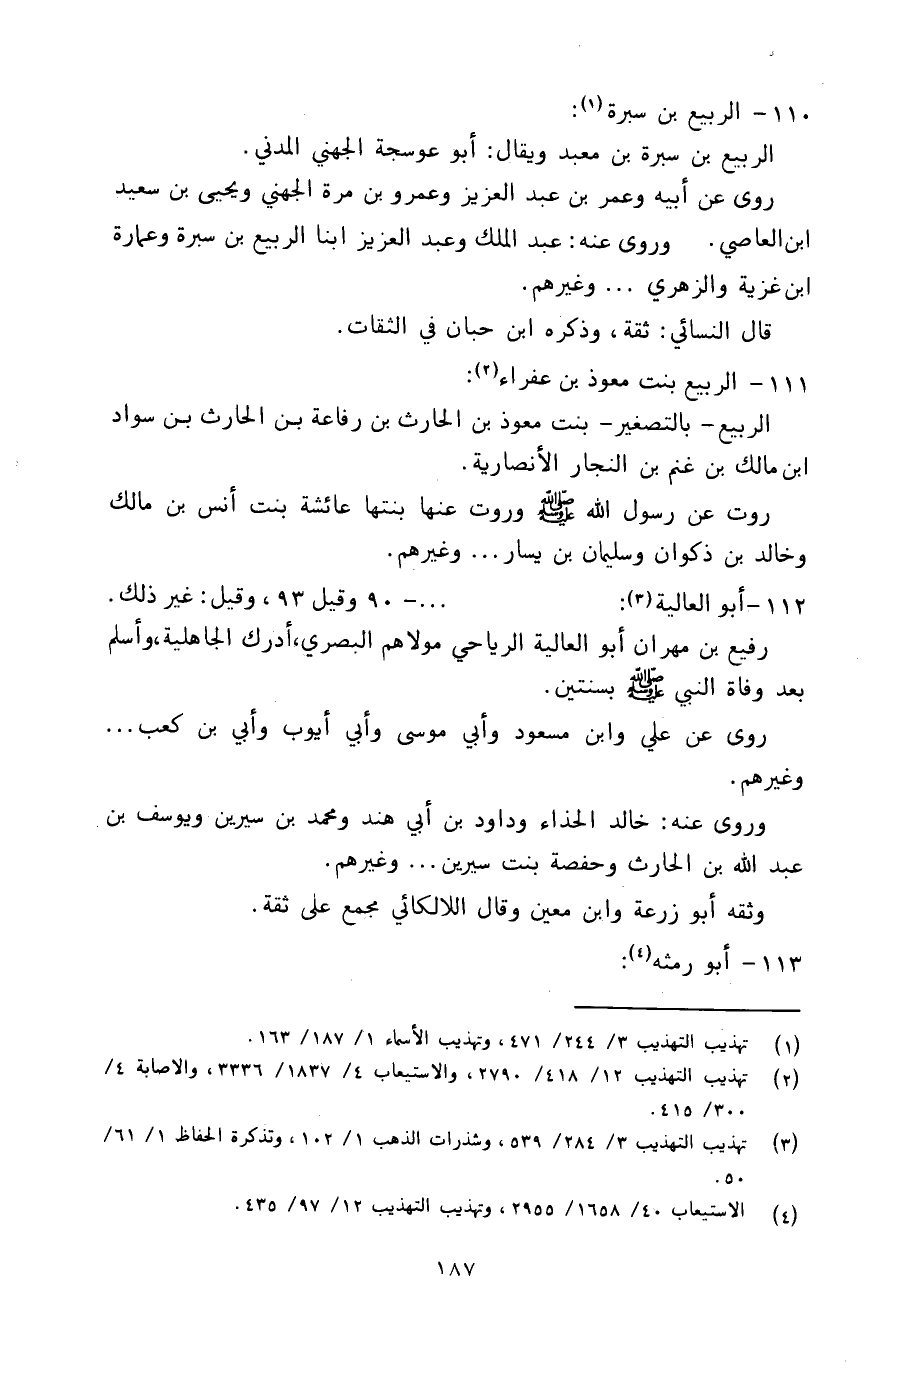 ١١٠- الربيع بن سبرة(١):
الربيع بن سبرة بن معبد ويقال: أبو عوسجة الجهني المدني.
روى عن أبيه وعمر بن عبد العزيز وعمرو بن مرة الجهني ويحيى بن سعيد
ابن العاصي. وروى عنه: عبد الملك وعبد العزيز ابنا الربيع بن سبرة وعمارة
ابن غزية والزهري ... وغيرهم.
قال النسائي: ثقة، وذكره ابن حبان في الثقات.
١١١- الربيع بنت معوذ بن عفراء(٢):
الربيع- بالتصغير- بنت معوذ بن الحارث بن رفاعة بن الحارث بن سواد
ابن مالك بن غنم بن النجار الأنصارية.
روت عن رسول الله ﷺ وروت عنها بنتها عائشة بنت أنس بن مالك
وخالد بن ذكوان وسليمان بن يسار... وغيرهم.
١١٢-أبو العالية(٣): ...- ٩٠ وقيل ٩٣، وقيل: غير ذلك.
رفيع بن مهران أبو العالية الرياحي مولاهم البصري،أدرك الجاهلية،وأسلم
بعد وفاة النبي ﷺ بسنتين.
روى عن علي وابن مسعود وأبي موسى وأبي أيوب وأبي بن كعب...
وغيرهم.
وروى عنه: خالد الحذاء وداود بن أبي هند ومحمد بن سيرين ويوسف بن
عبد الله بن الحارث وحفصة بنت سيرين... وغيرهم.
وثقه أبو زرعة وابن معين وقال اللالكائي مجمع على ثقة.
١١٣- أبو رمثه(٤):
(١) تهذيب التهذيب ٣/ ٢٤٤/ ٤٧١، وتهذيب الأسماء ١/ ١٨٧/ ١٦٣.
(٢) تهذيب التهذيب ١٢/ ٤١٨/ ٢٧٩٠، والاستيعاب ٤/ ١٨٣٧/ ٣٣٣٦، والاصابة ٤/
٣٠٠/ ٤١٥.
(٣) تهذيب التهذيب ٣/ ٢٨٤/ ٥٣٩، وشذرات الذهب ١/ ١٠٢، وتذكرة الحفاظ ١/ ٦١/
٥٠.
(٤) الاستيعاب ٤٠/ ١٦٥٨/ ٢٩٥٥، وتهذيب التهذيب ١٢/ ٩٧/ ٤٣٥.
١٨٧